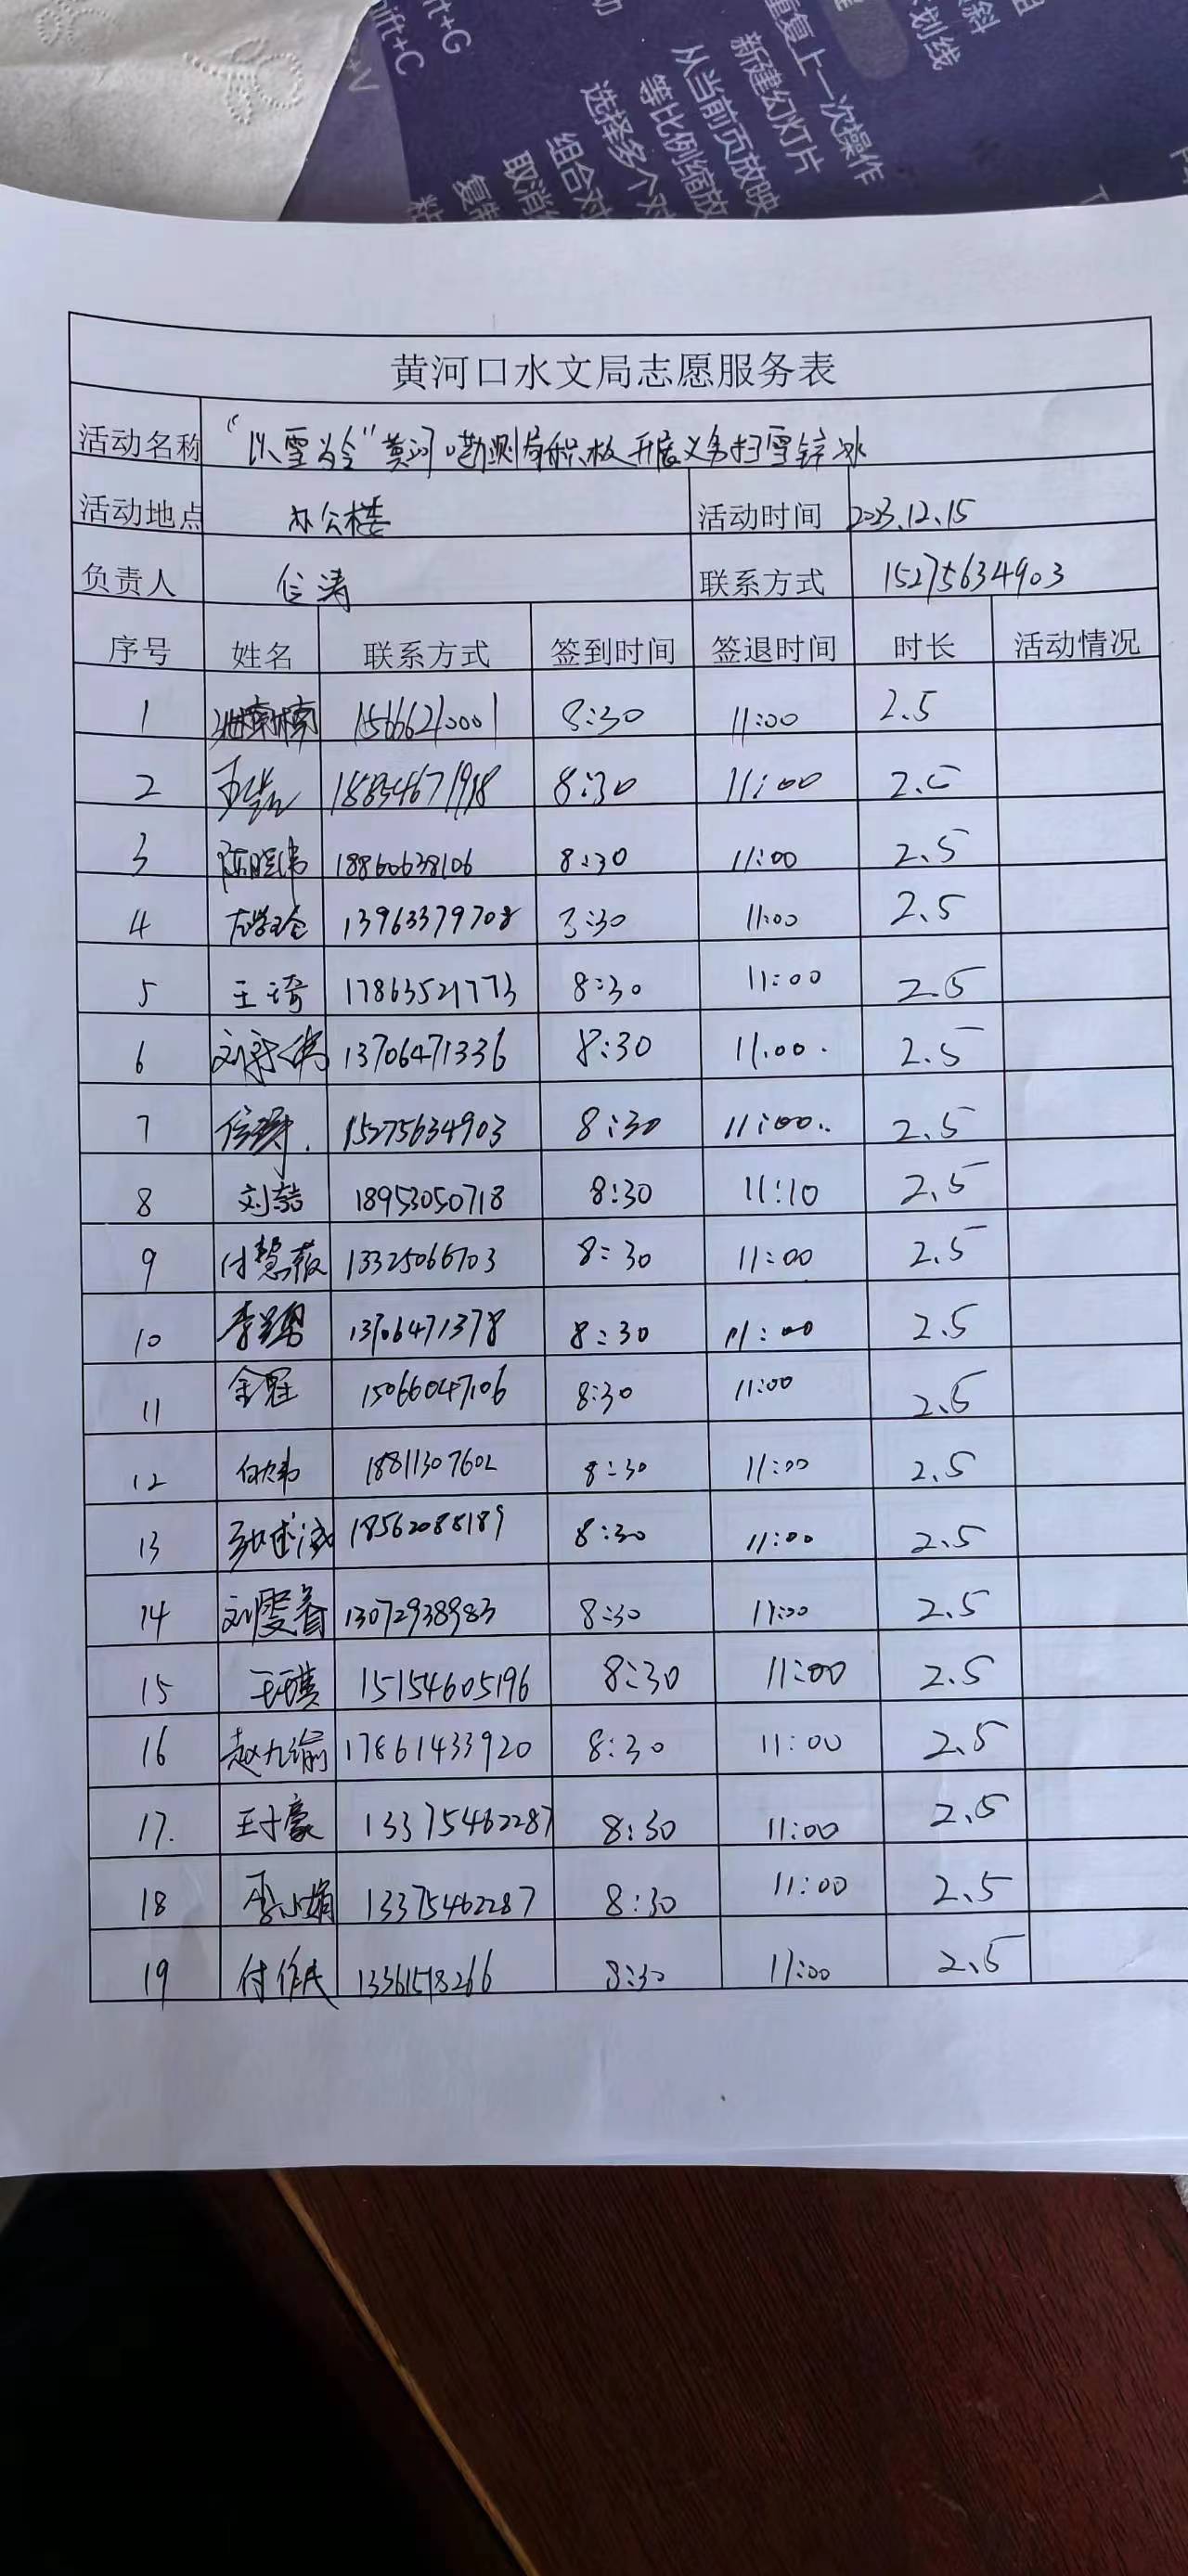 ft+G
hift+C
+V
切
重复上一次操作
新建幻灯片
从当前页放映
等比例缩放
选择多个对
组合对
取消
复制
粘
划线
斜
黄河口水文局志愿服务表
活动名称 "以雪为令"黄河口勘测局积极开展义务扫雪锌冰
活动地点 办公楼 活动时间 2023.12.15
负责人 信涛 联系方式 15275634903
序号 姓名 联系方式 签到时间 签退时间 时长 活动情况
1 15666210001 8:30 11:00 2.5
2 18854671918 8:30 11:00 2.5
3 陈晓伟 18860638106 8:30 11:00 2.5
4 13963379708 8:30 11:00 2.5
5 王琦 17863521773 8:30 11:00 2.5
6 13706471336 8:30 11:00. 2.5
7 信涛. 15275634903 8:30 11:00.. 2.5
8 刘喆 18953050718 8:30 11:10 2.5
9 付慧薇 13325066703 8:30 11:00 2.5
10 13706471378 8:30 11:00 2.5
11 金冠 15066047106 8:30 11:00 2.5
12 18811307602 8:30 11:00 2.5
13 18562088189 8:30 11:00 2.5
14 13072938983 8:30 11:00 2.5
15 15154605196 8:30 11:00 2.5
16 赵九瑜 17861433920 8:30 11:00 2.5
17. 王子豪 13375462287 8:30 11:00 2.5
18 李小娟 13375462287 8:30 11:00 2.5
19 付作民 13361518266 8:30 11:00 2.5